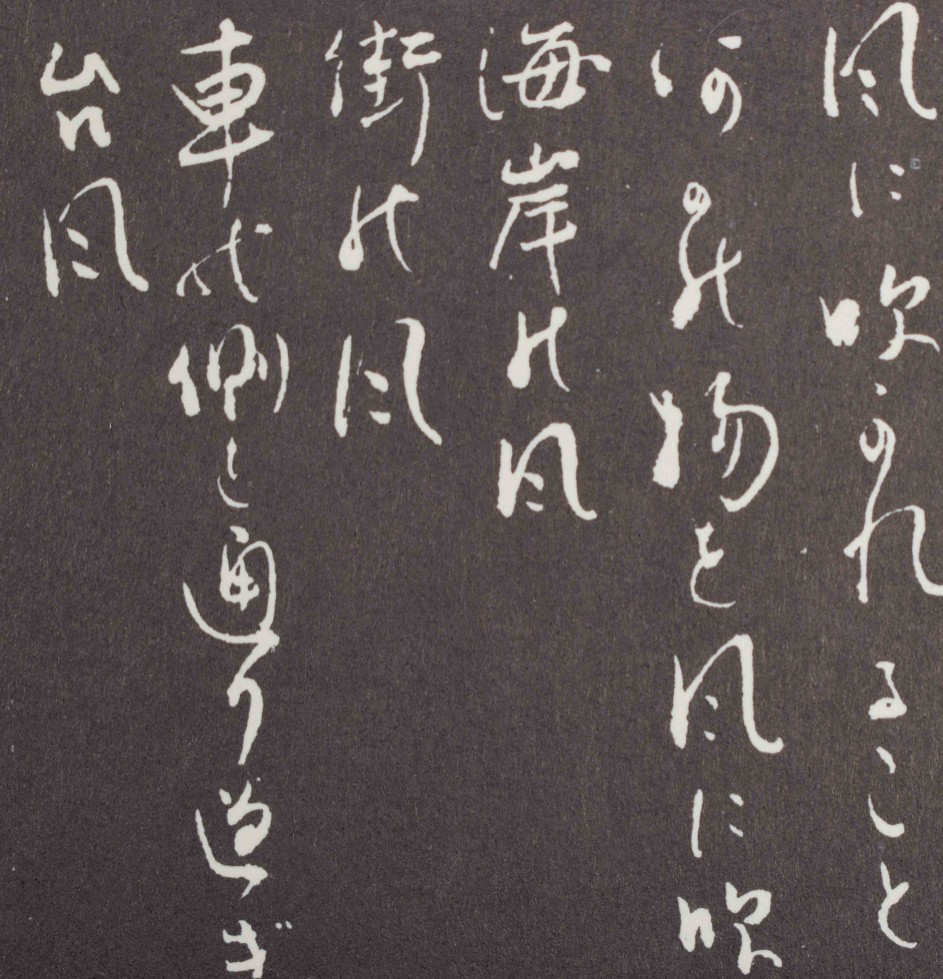 風に吹かれること
何かの物を風に吹
海岸の風
街の風
車が側を通り過ぎ
台風